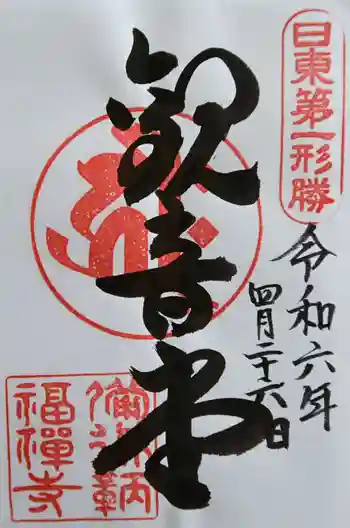 日東第一形勝
令和六年
四月二十六日
観音堂
備後鞆
福禅寺